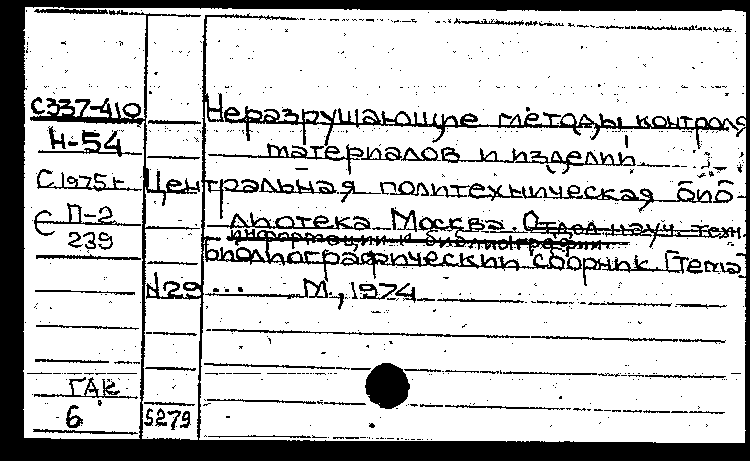 С337-410
Н-54
С 1975 г.
Є П-2
239
ГАК
6
Неразрушающие методы контроля
материалов и изделий.
Центральная политехническая биб-
лиотека. Москва. Отдел науч. техн.
информации и библиографии.
Библиографический сборник. [Тема]
N29... М., 1974
5279